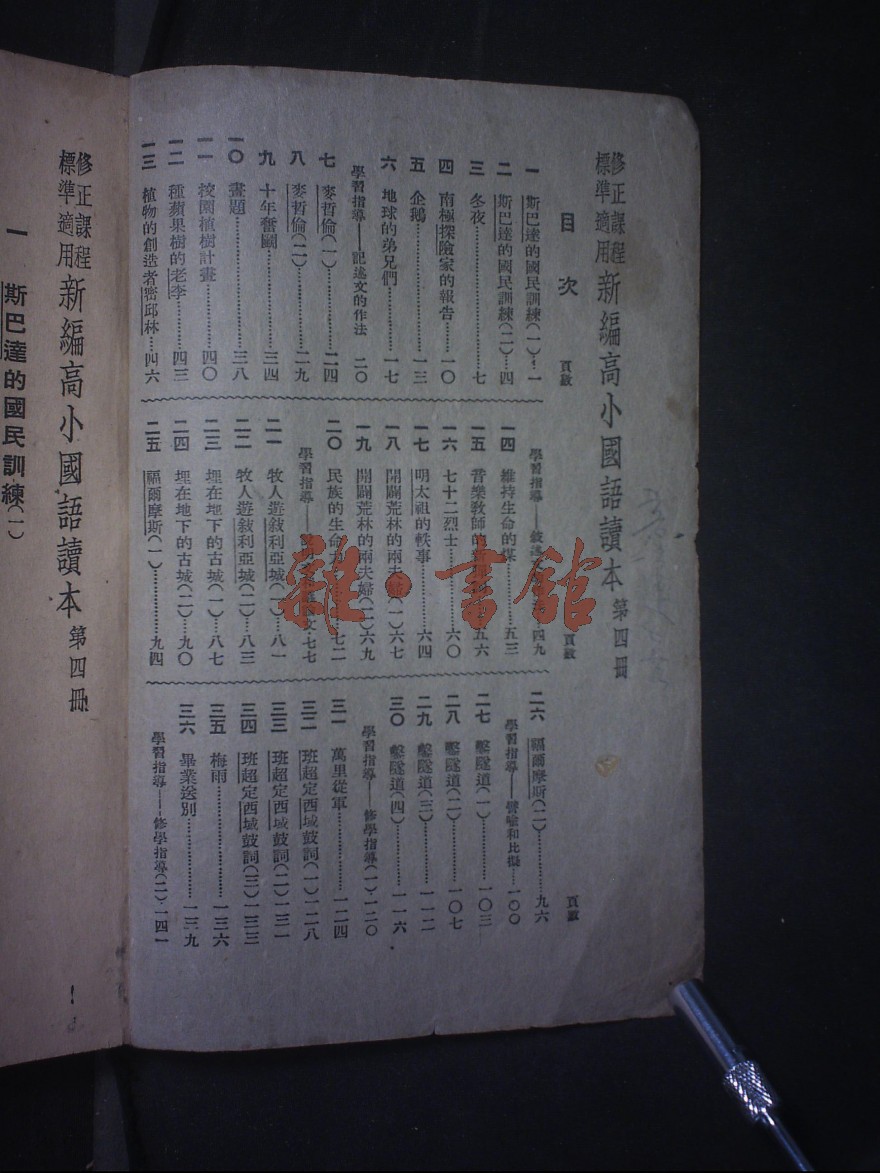 修正課程
標準適用
新編高小國語讀本 第四冊
目次
頁數
一 斯巴達的國民訓練(一)‥一
二 斯巴達的國民訓練(二)‥四
三 冬夜…………七
四 南極探險家的報告……一〇
五 企鵝…………一三
六 地球的弟兄們…………一七
學習指導——記述文的作法 二〇
七 麥哲倫(一)…………二四
八 麥哲倫(二)…………二九
九 十年奮鬭…………三四
一〇 畫題…………三八
一一 校園植樹計畫…………四〇
一二 種蘋果樹的老李…………四三
一三 植物的創造者密邱林…四六
頁數
學習指導——敍述文 四九
一四 維持生命的煤…五三
一五 音樂教師的 五六
一六 七十二烈士…六〇
一七 明太祖的軼事…六四
一八 開闢荒林的兩夫婦(一)六七
一九 開闢荒林的兩夫婦(二)六九
二〇 民族的生命 七二
學習指導—— 文‥七七
二一 牧人遊敍利亞城(一)…八一
二二 牧人遊敍利亞城(二)…八三
二三 埋在地下的古城(一)…八七
二四 埋在地下的古城(二)…九〇
二五 福爾摩斯(一)…………九四
頁數
二六 福爾摩斯(二)…………九六
學習指導——譬喻和比擬…一〇〇
二七 鑿隧道(一)…………一〇三
二八 鑿隧道(二)…………一〇七
二九 鑿隧道(三)…………一一二
三〇 鑿隧道(四)…………一一六
學習指導——修學指導(一)‥一二〇
三一 萬里從軍…………一二四
三二 班超定西域鼓詞(一)一二八
三三 班超定西域鼓詞(二)一三一
三四 班超定西域鼓詞(三)一三三
三五 梅雨…………一三六
三六 畢業送別…………一三九
學習指導——修學指導(二)‥一四一
雜·書館
修正課程
標準適用
新編高小國語讀本 第四冊
一 斯巴達的國民訓練(一)